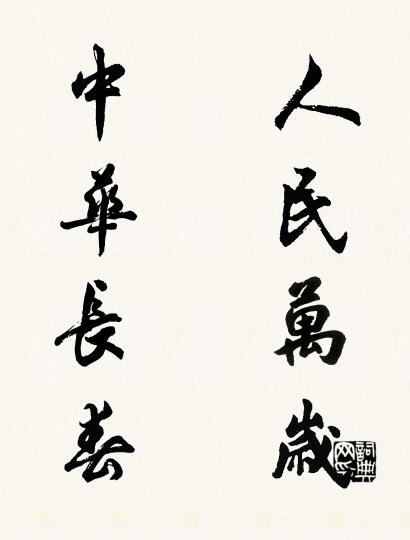 人民萬歲
中華長春
詞典网